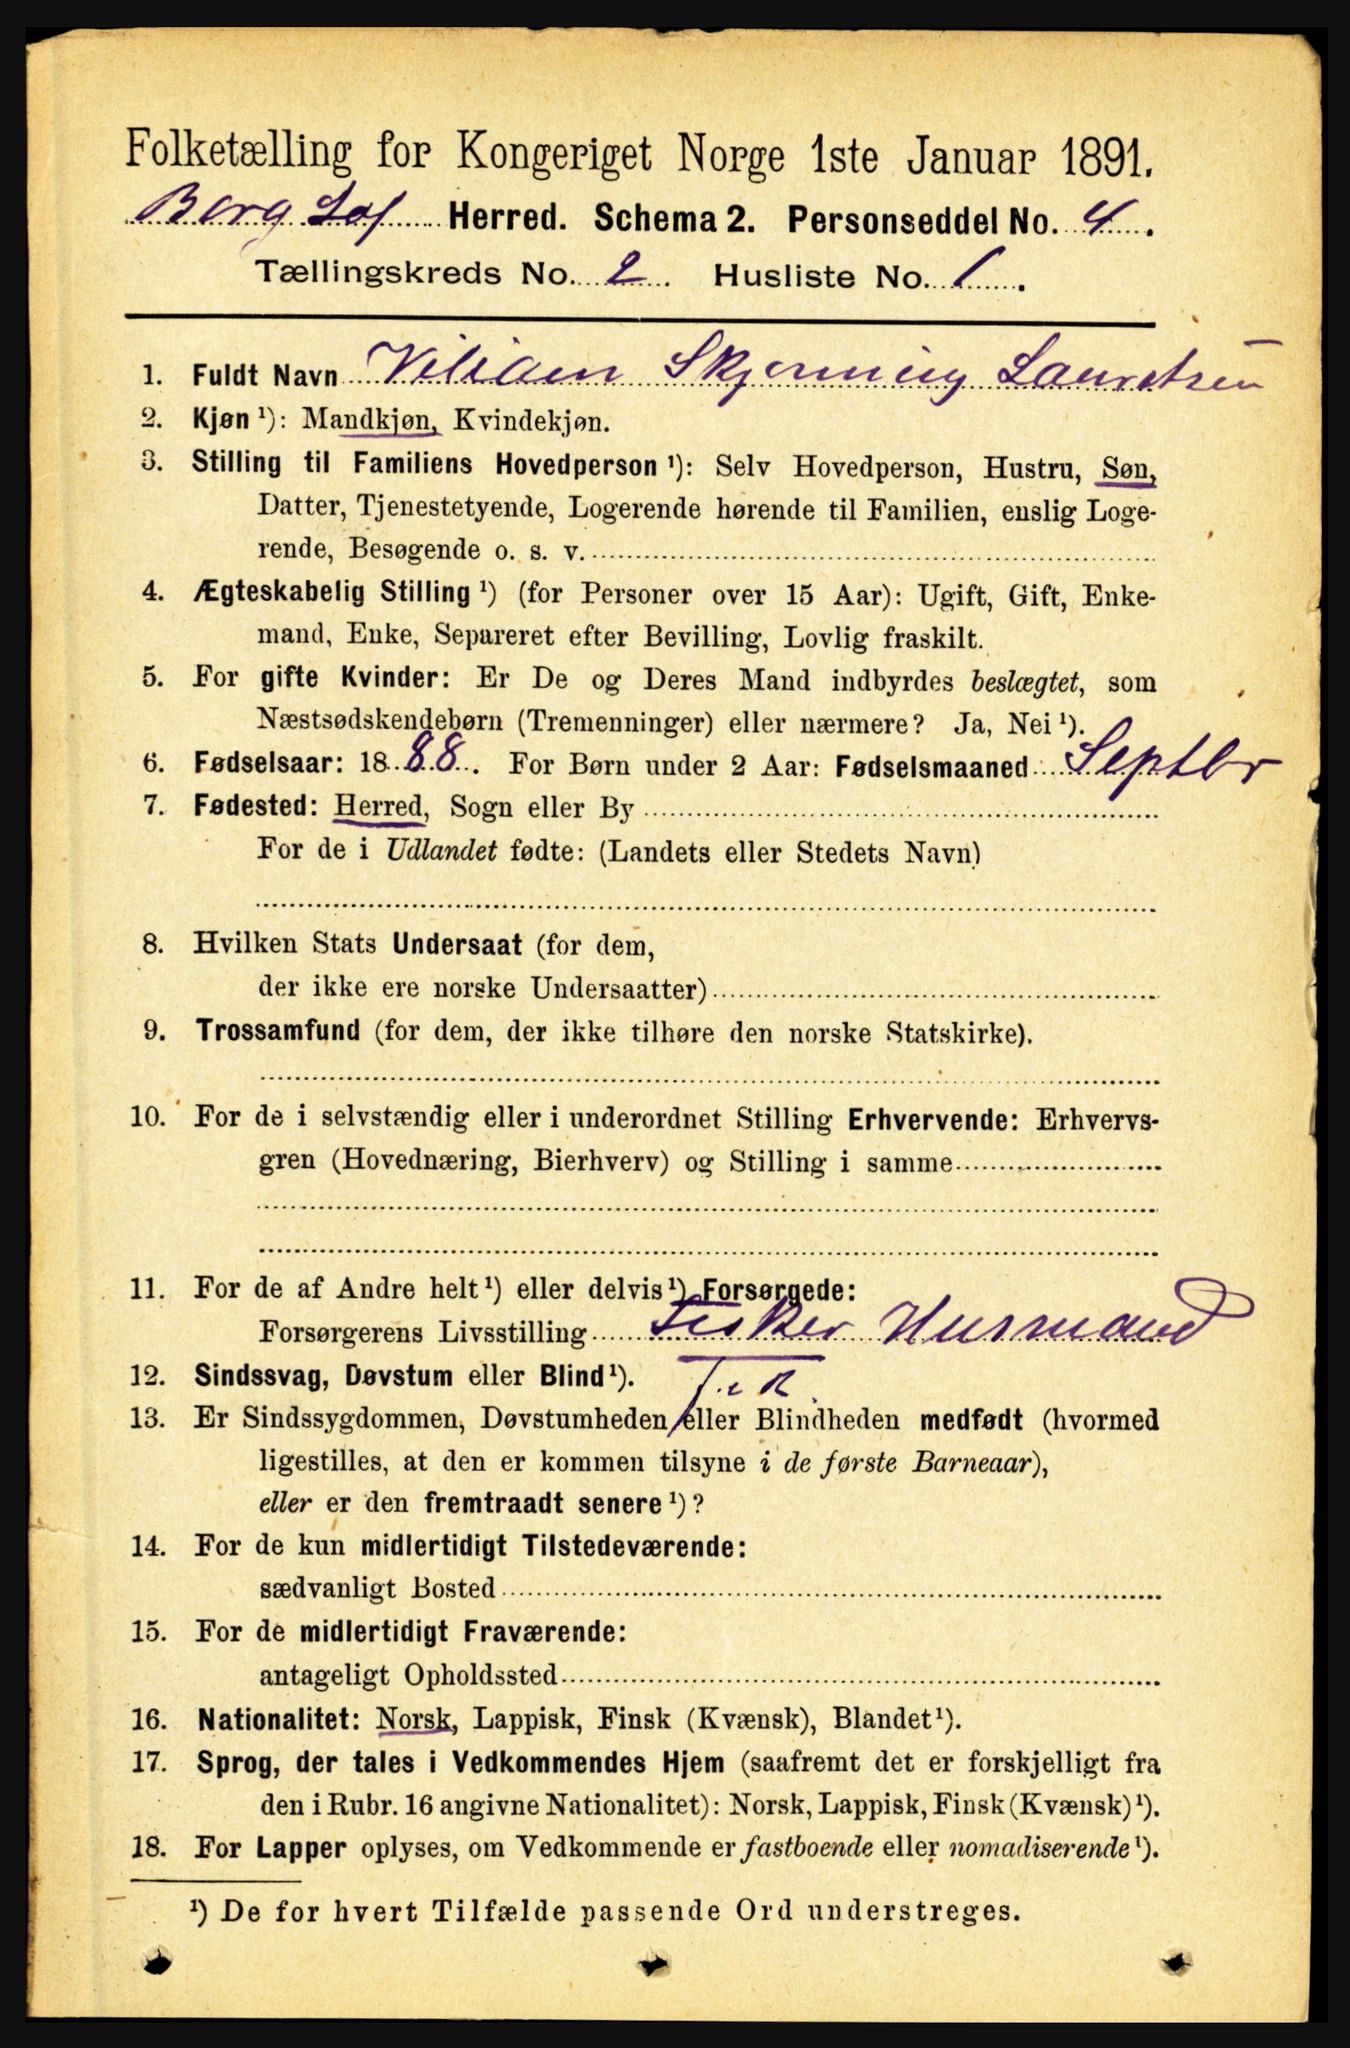 Folketælling for Kongeriget Norge 1ste Januar 1891.
Borg Lof Herred. Schema 2. Personseddel No. 4.
Tællingskreds No. 2. Husliste No. 1.
1. Fuldt Navn Viliam Skjerming Lauretsen
2. Kjøn ¹): Mandkjøn, Kvindekjøn.
3. Stilling til Familiens Hovedperson ¹): Selv Hovedperson, Hustru, Søn,
Datter, Tjenestetyende, Logerende hørende til Familien, enslig Loge-
rende, Besøgende o. s. v.
4. Ægteskabelig Stilling ¹) (for Personer over 15 Aar): Ugift, Gift, Enke-
mand, Enke, Separeret efter Bevilling, Lovlig fraskilt.
5. For gifte Kvinder: Er De og Deres Mand indbyrdes beslægtet, som
Næstsødskendebørn (Tremenninger) eller nærmere? Ja, Nei ¹).
6. Fødselsaar: 1888. For Børn under 2 Aar: Fødselsmaaned Septbr
7. Fødested: Herred, Sogn eller By
For de i Udlandet fødte: (Landets eller Stedets Navn)
8. Hvilken Stats Undersaat (for dem,
der ikke ere norske Undersaatter)
9. Trossamfund (for dem, der ikke tilhøre den norske Statskirke).
10. For de i selvstændig eller i underordnet Stilling Erhvervende: Erhvervs-
gren (Hovednæring, Bierhverv) og Stilling i samme
11. For de af Andre helt ¹) eller delvis ¹) Forsørgede:
Forsørgerens Livsstilling Fisker Husmand
12. Sindssvag, Døvstum eller Blind ¹).
13. Er Sindssygdommen, Døvstumheden eller Blindheden medfødt (hvormed
ligestilles, at den er kommen tilsyne i de første Barneaar),
eller er den fremtraadt senere ¹)?
14. For de kun midlertidigt Tilstedeværende:
sædvanligt Bosted
15. For de midlertidigt Fraværende:
antageligt Opholdssted
16. Nationalitet: Norsk, Lappisk, Finsk (Kvænsk), Blandet ¹).
17. Sprog, der tales i Vedkommendes Hjem (saafremt det er forskjelligt fra
den i Rubr. 16 angivne Nationalitet): Norsk, Lappisk, Finsk (Kvænsk) ¹).
18. For Lapper oplyses, om Vedkommende er fastboende eller nomadiserende ¹).
¹) De for hvert Tilfælde passende Ord understreges.